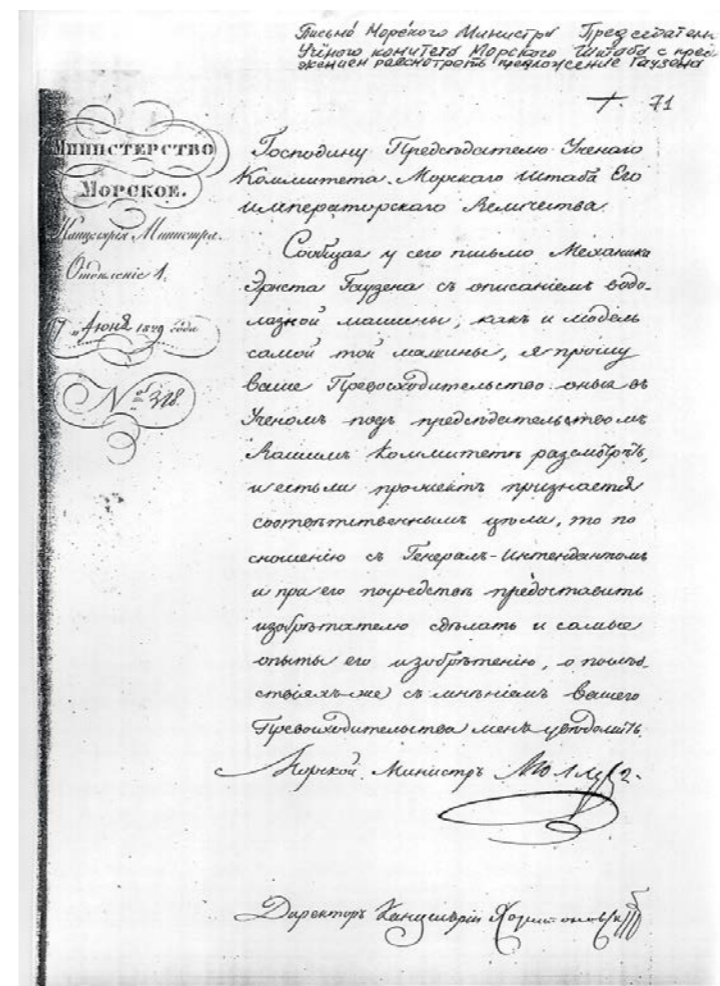 Письмо Морского Министра Председателю
Учёного комитета Морского Штаба с пред-
жением рассмотреть предложение Гаузена
71
МИНИСТЕРСТВО
МОРСКОЕ.
Канцелярія Министра.
Отделеніе 1.
7 Июня 1829 года
№ 318.
Господину Председателю Ученаго
Коммитета Морскаго Штаба Его
императорскаго Величества.
Сообщая у сего письмо Механика
Гаузена съ описаніемъ водо-
лазной машины, какъ и модель
самой той машины, я прошу
Ваше Превосходительство оныя въ
Ученомъ подъ председательствомъ
Вашимъ Коммитетѣ разсмотрѣть,
и естьли проэктъ признается
соответственнымъ цѣли, то по
сношенію съ Генералъ-Интендантомъ
и при его посредстве предоставить
изобрѣтателю сдѣлать и самые
опыты его изобрѣтенію, о послѣд-
ствіяхъ же съ мнѣніемъ Вашего
Превосходительства меня уведомить.
Морской Министръ
Директоръ Канцеляріи